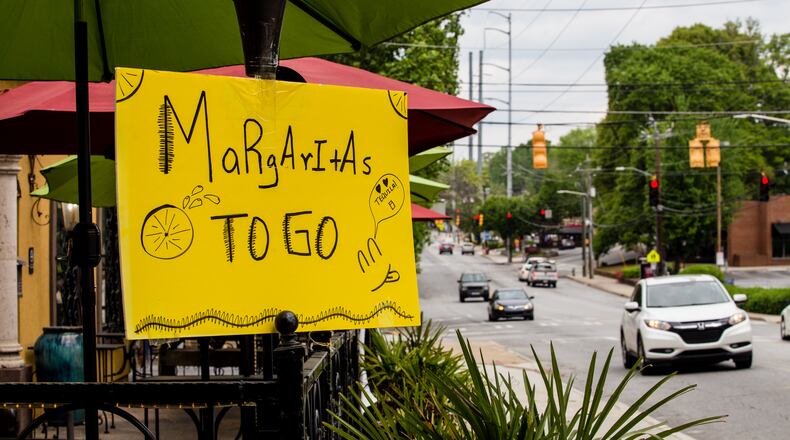 MaRgArItAs
TO GO
TEQUILA!